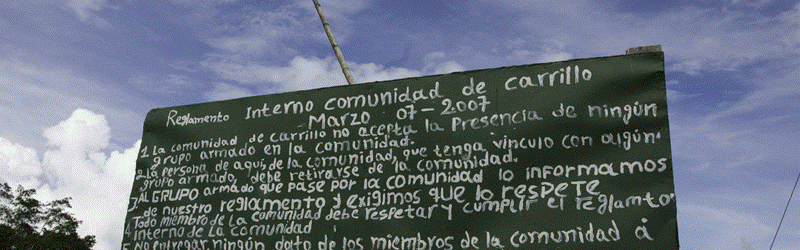 Reglamento Interno comunidad de carrillo
Marzo 07-2007
1 La comunidad de carrillo no acepta la Presencia de ningún
grupo armado en la comunidad.
2. La persona de aqui, de la comunidad, que tenga vinculo con algún
grupo armado, debe retirarse de la comunidad.
3. Al GRUPO armado que pase por la comunidad lo informamos
de nuestro reglamento y exigimos que lo respete
Todo miembro de la comunidad debe respetar y cumplir el reglamto
4 interno de la comunidad
5 No entregar ningún dato de los miembros de la comunidad á